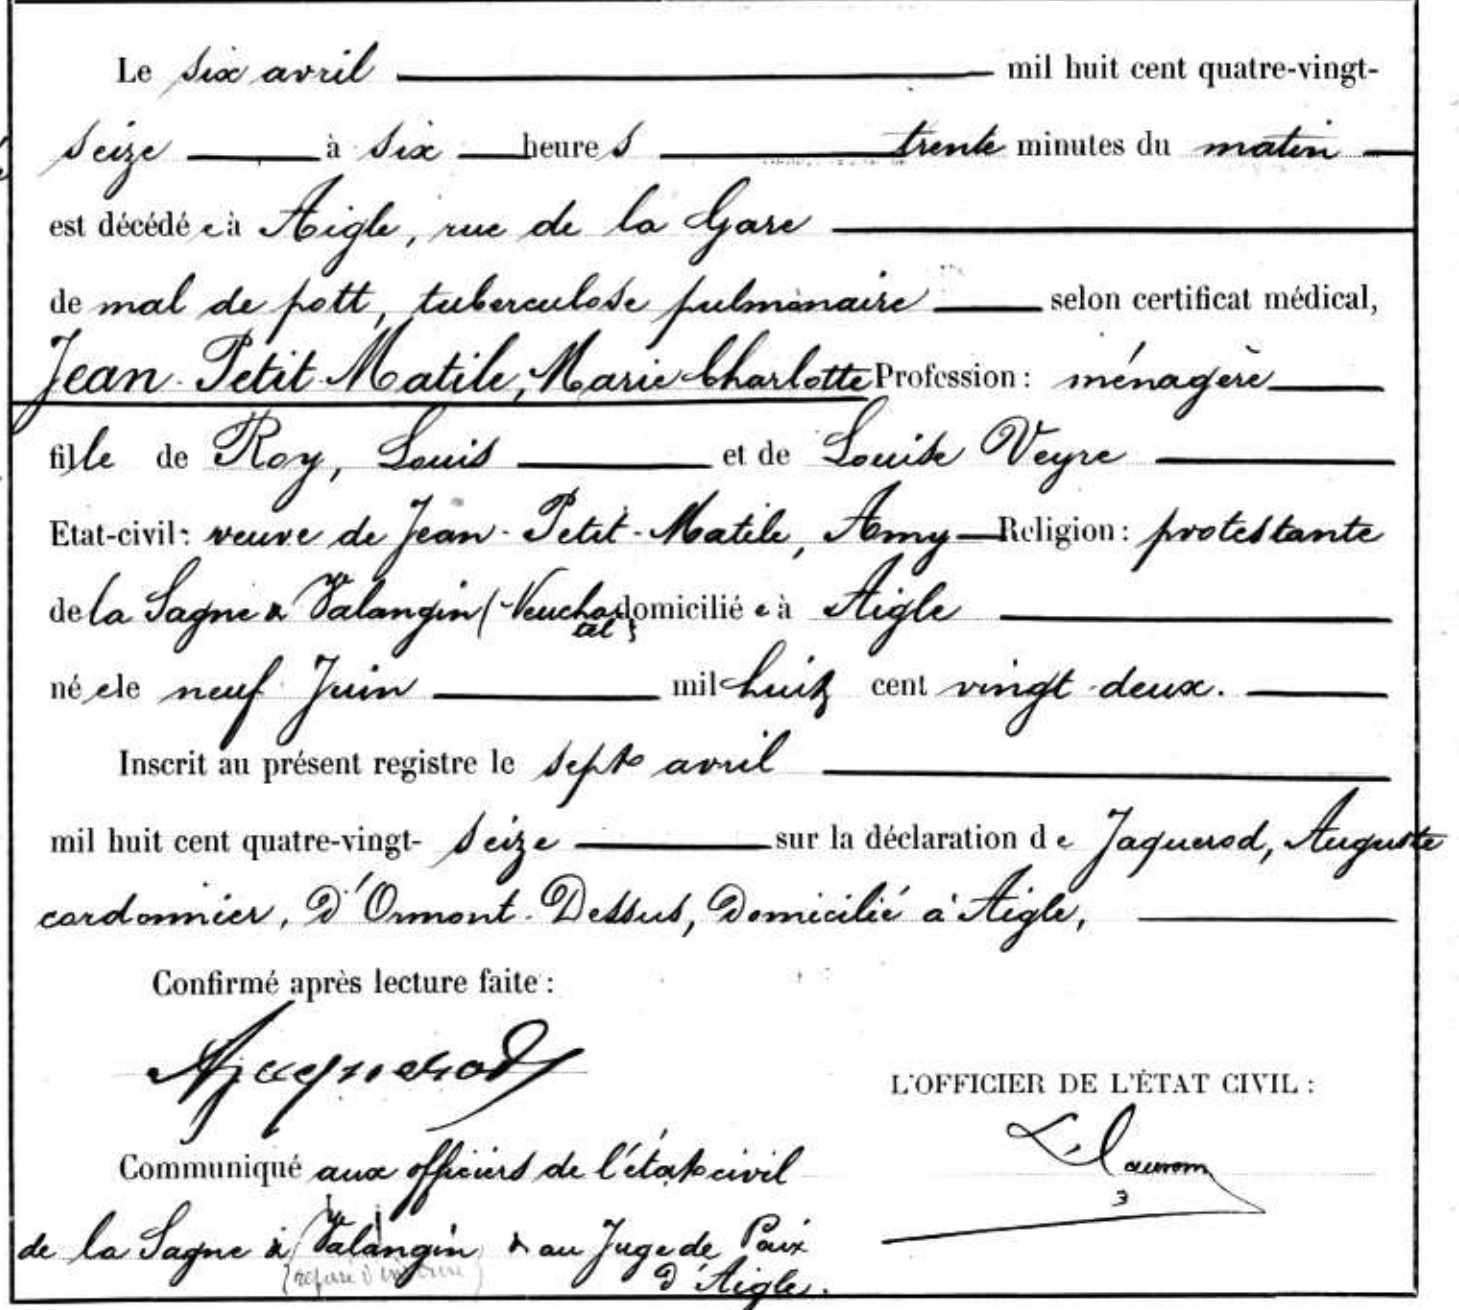 Le six avril mil huit cent quatre-vingt-
seize à six heures trente minutes du matin
est décédée à Aigle, rue de la Gare
de mal de pott, tuberculose pulmonaire selon certificat médical,
Jean-Petit-Matile, Marie Charlotte Profession: ménagère
fille de Roy, Louis et de Louise Veyre
Etat-civil: veuve de Jean-Petit-Matile, Amy Religion: protestante
de la Sagne & Valangin (Neuchatel) domiciliée à Aigle
née le neuf Juin mil huit cent vingt-deux.
Inscrit au présent registre le sept avril
mil huit cent quatre-vingt-seize sur la déclaration de Jaquerod, Auguste
cordonnier, d'Ormont-Dessus, domicilié à Aigle,
Confirmé après lecture faite:
A Jaquerod
L'OFFICIER DE L'ÉTAT CIVIL:
Communiqué aux officiers de l'état civil
de la Sagne & Valangin & au Juge de Paix
d'Aigle.